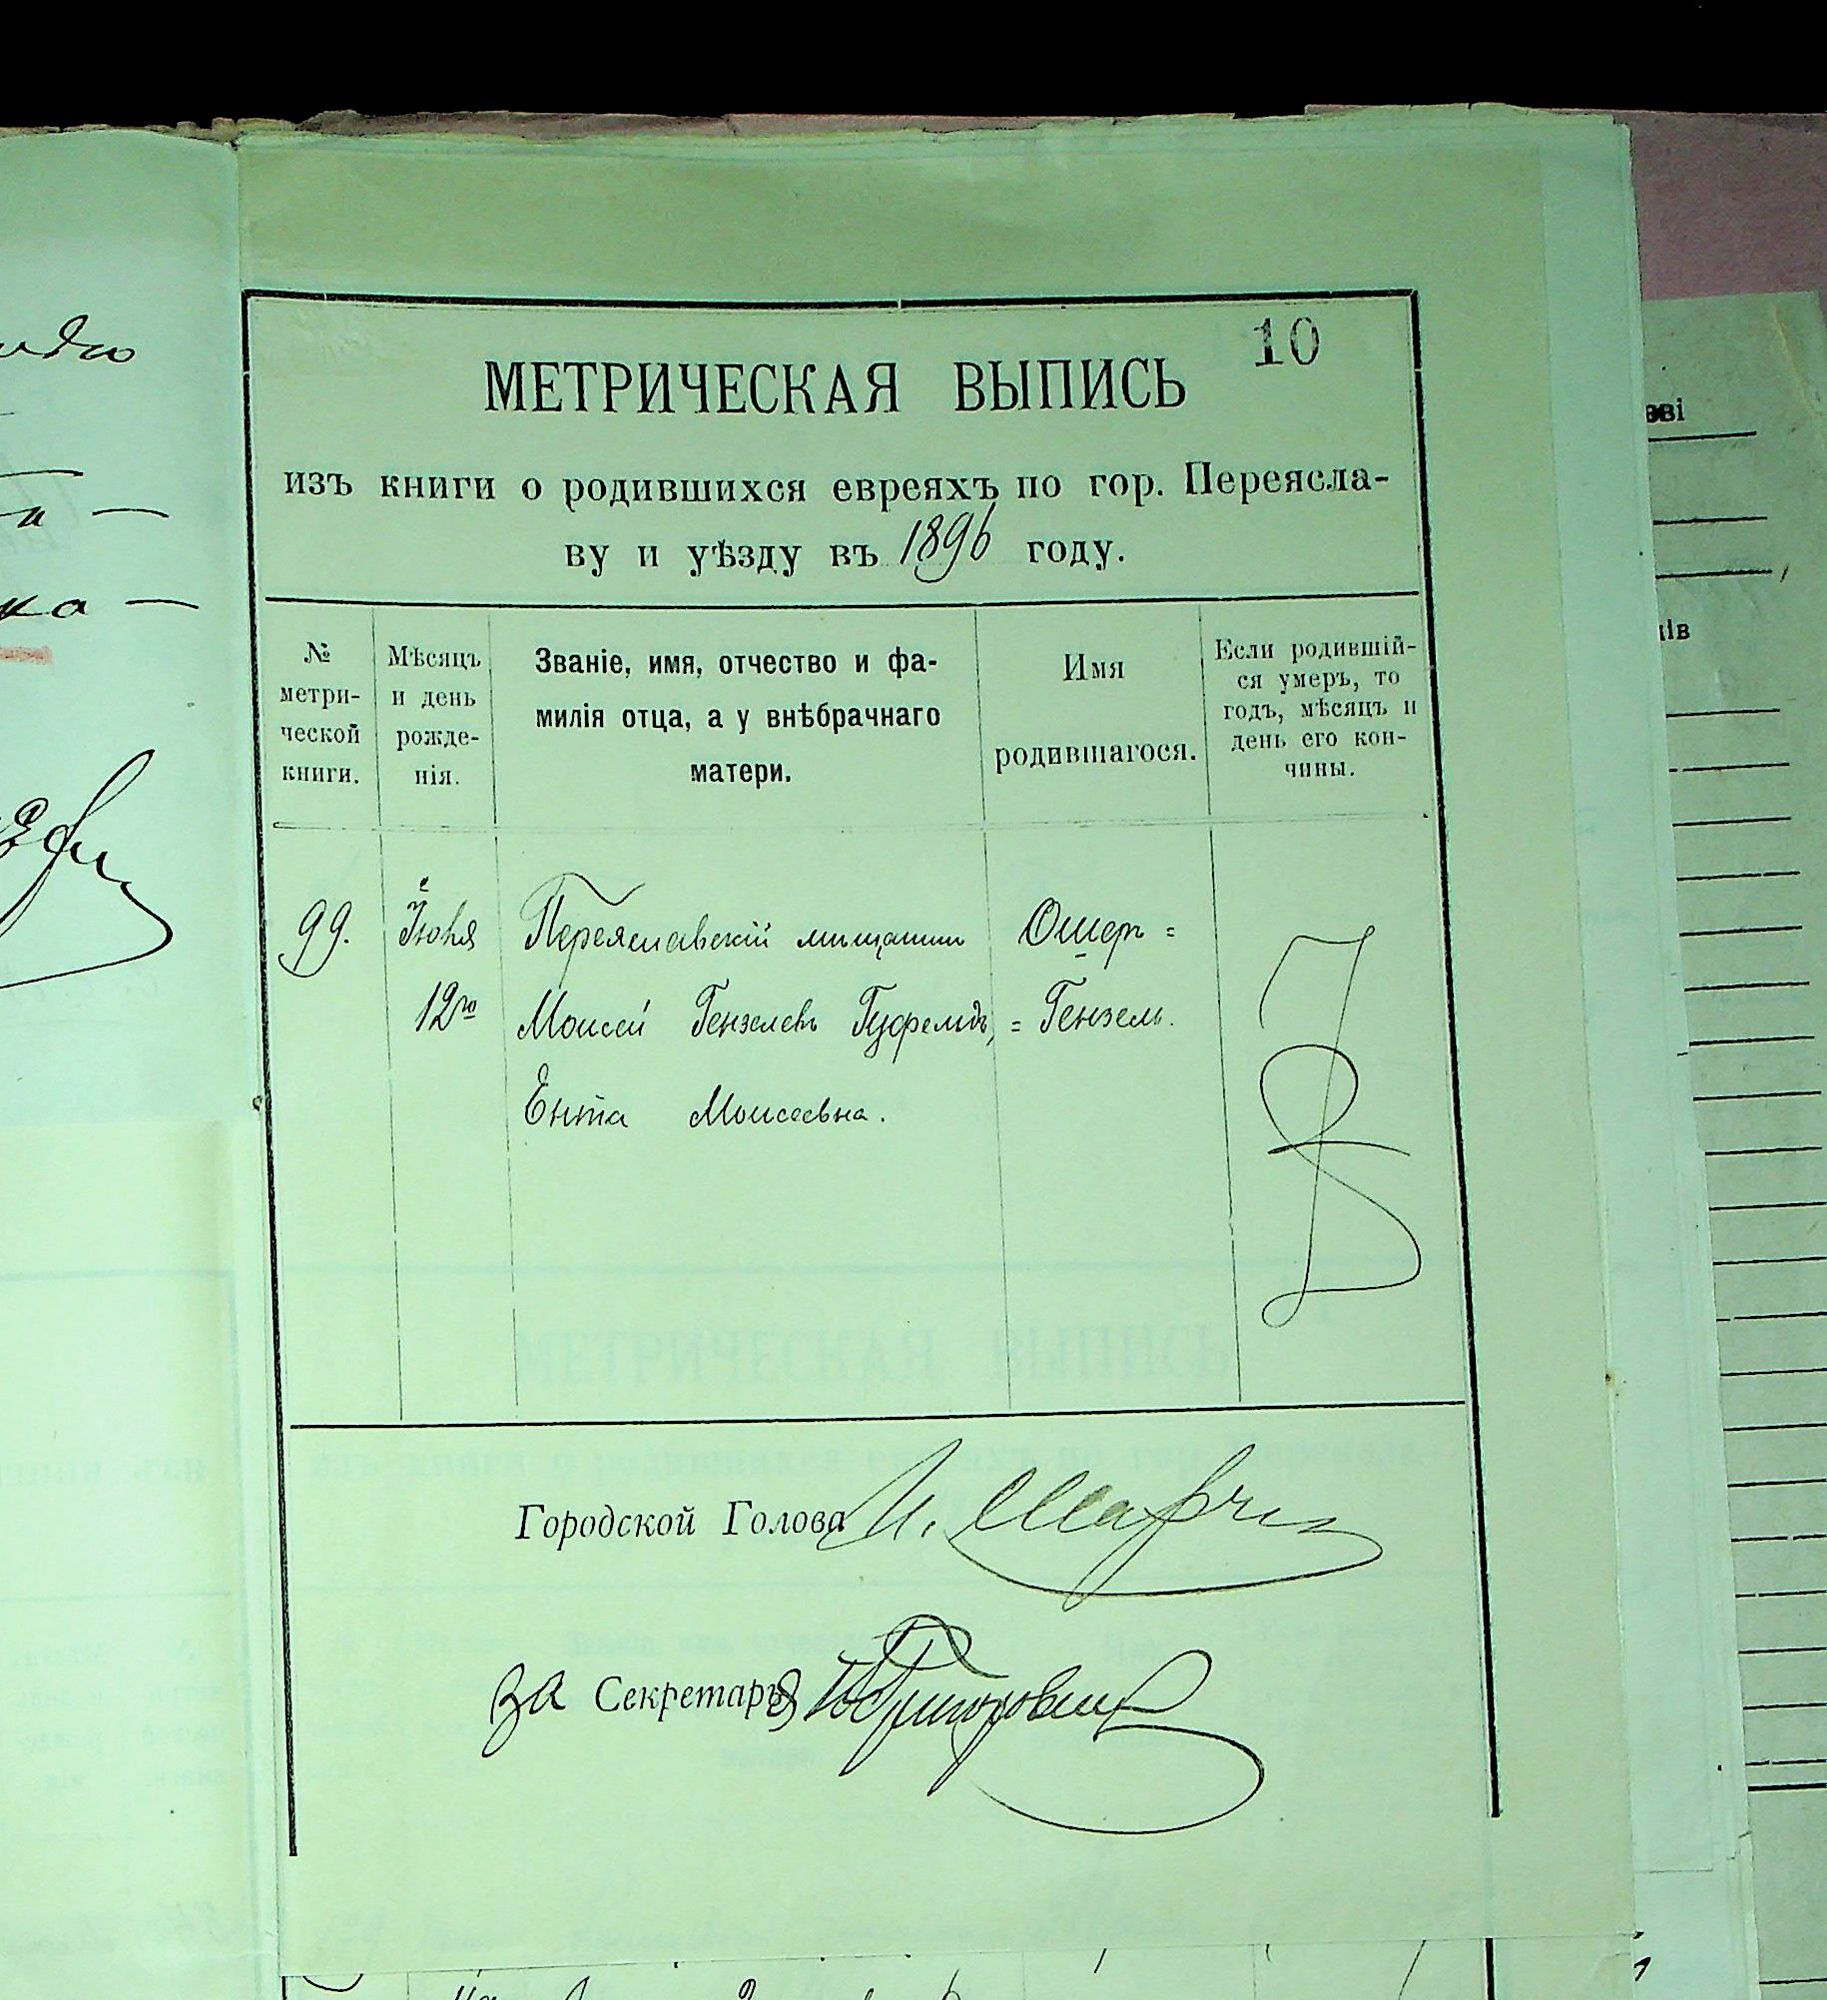 10
МЕТРИЧЕСКАЯ ВЫПИСЬ
изъ книги о родившихся евреяхъ по гор. Переясла-
ву и уѣзду въ 1896 году.
№ метри-ческой книги.
Мѣсяцъ и день рожде-нія.
Званіе, имя, отчество и фа-
милія отца, а у внѣбрачнаго
матери.
Имя
родившагося.
Если родившій-
ся умеръ, то
годъ, мѣсяцъ и
день его кон-
чины.
99. Іюня Переяславскій мѣщанин Ошер =
12го Моисей Гензелев = Гензель.
Ента Моисеевна.
Городской Голова И.
за Секретаря Григорович